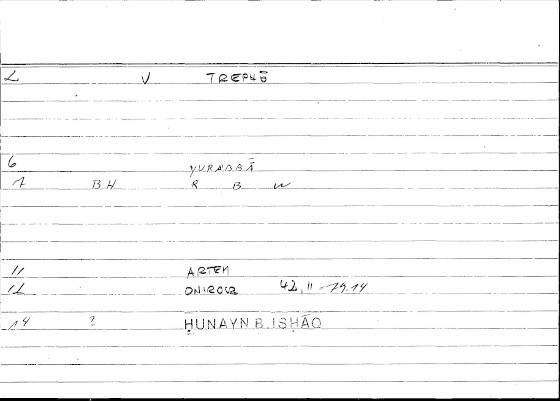 2 V TREPHŌ
6 YURABBĀ
7 BH R B W
11 ARTEM
12 ONIROCR 42, 11 - 19.14
14 ? ḤUNAYN B. ISḤĀQ